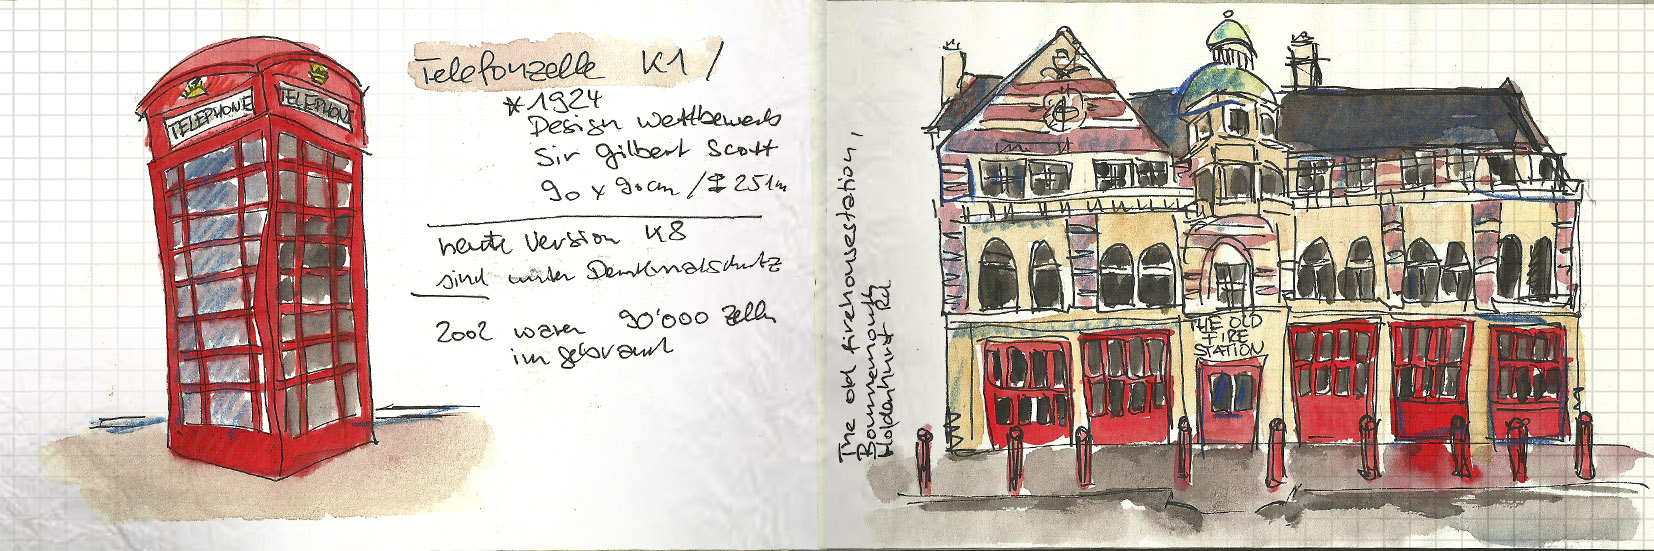 TELEPHONE
TELEPHONE
Telefonzelle K1 /
* 1924
Design Wettbewerb
Sir Gilbert Scott
90 x 90cm / 251m
heute Version K8
sind unter Denkmalschutz
2002 waren 90'000 Zellen
im gebrauch
The old firehousestation,
Bournemouth
Holdenhurst Rd.
THE OLD
FIRE
STATION